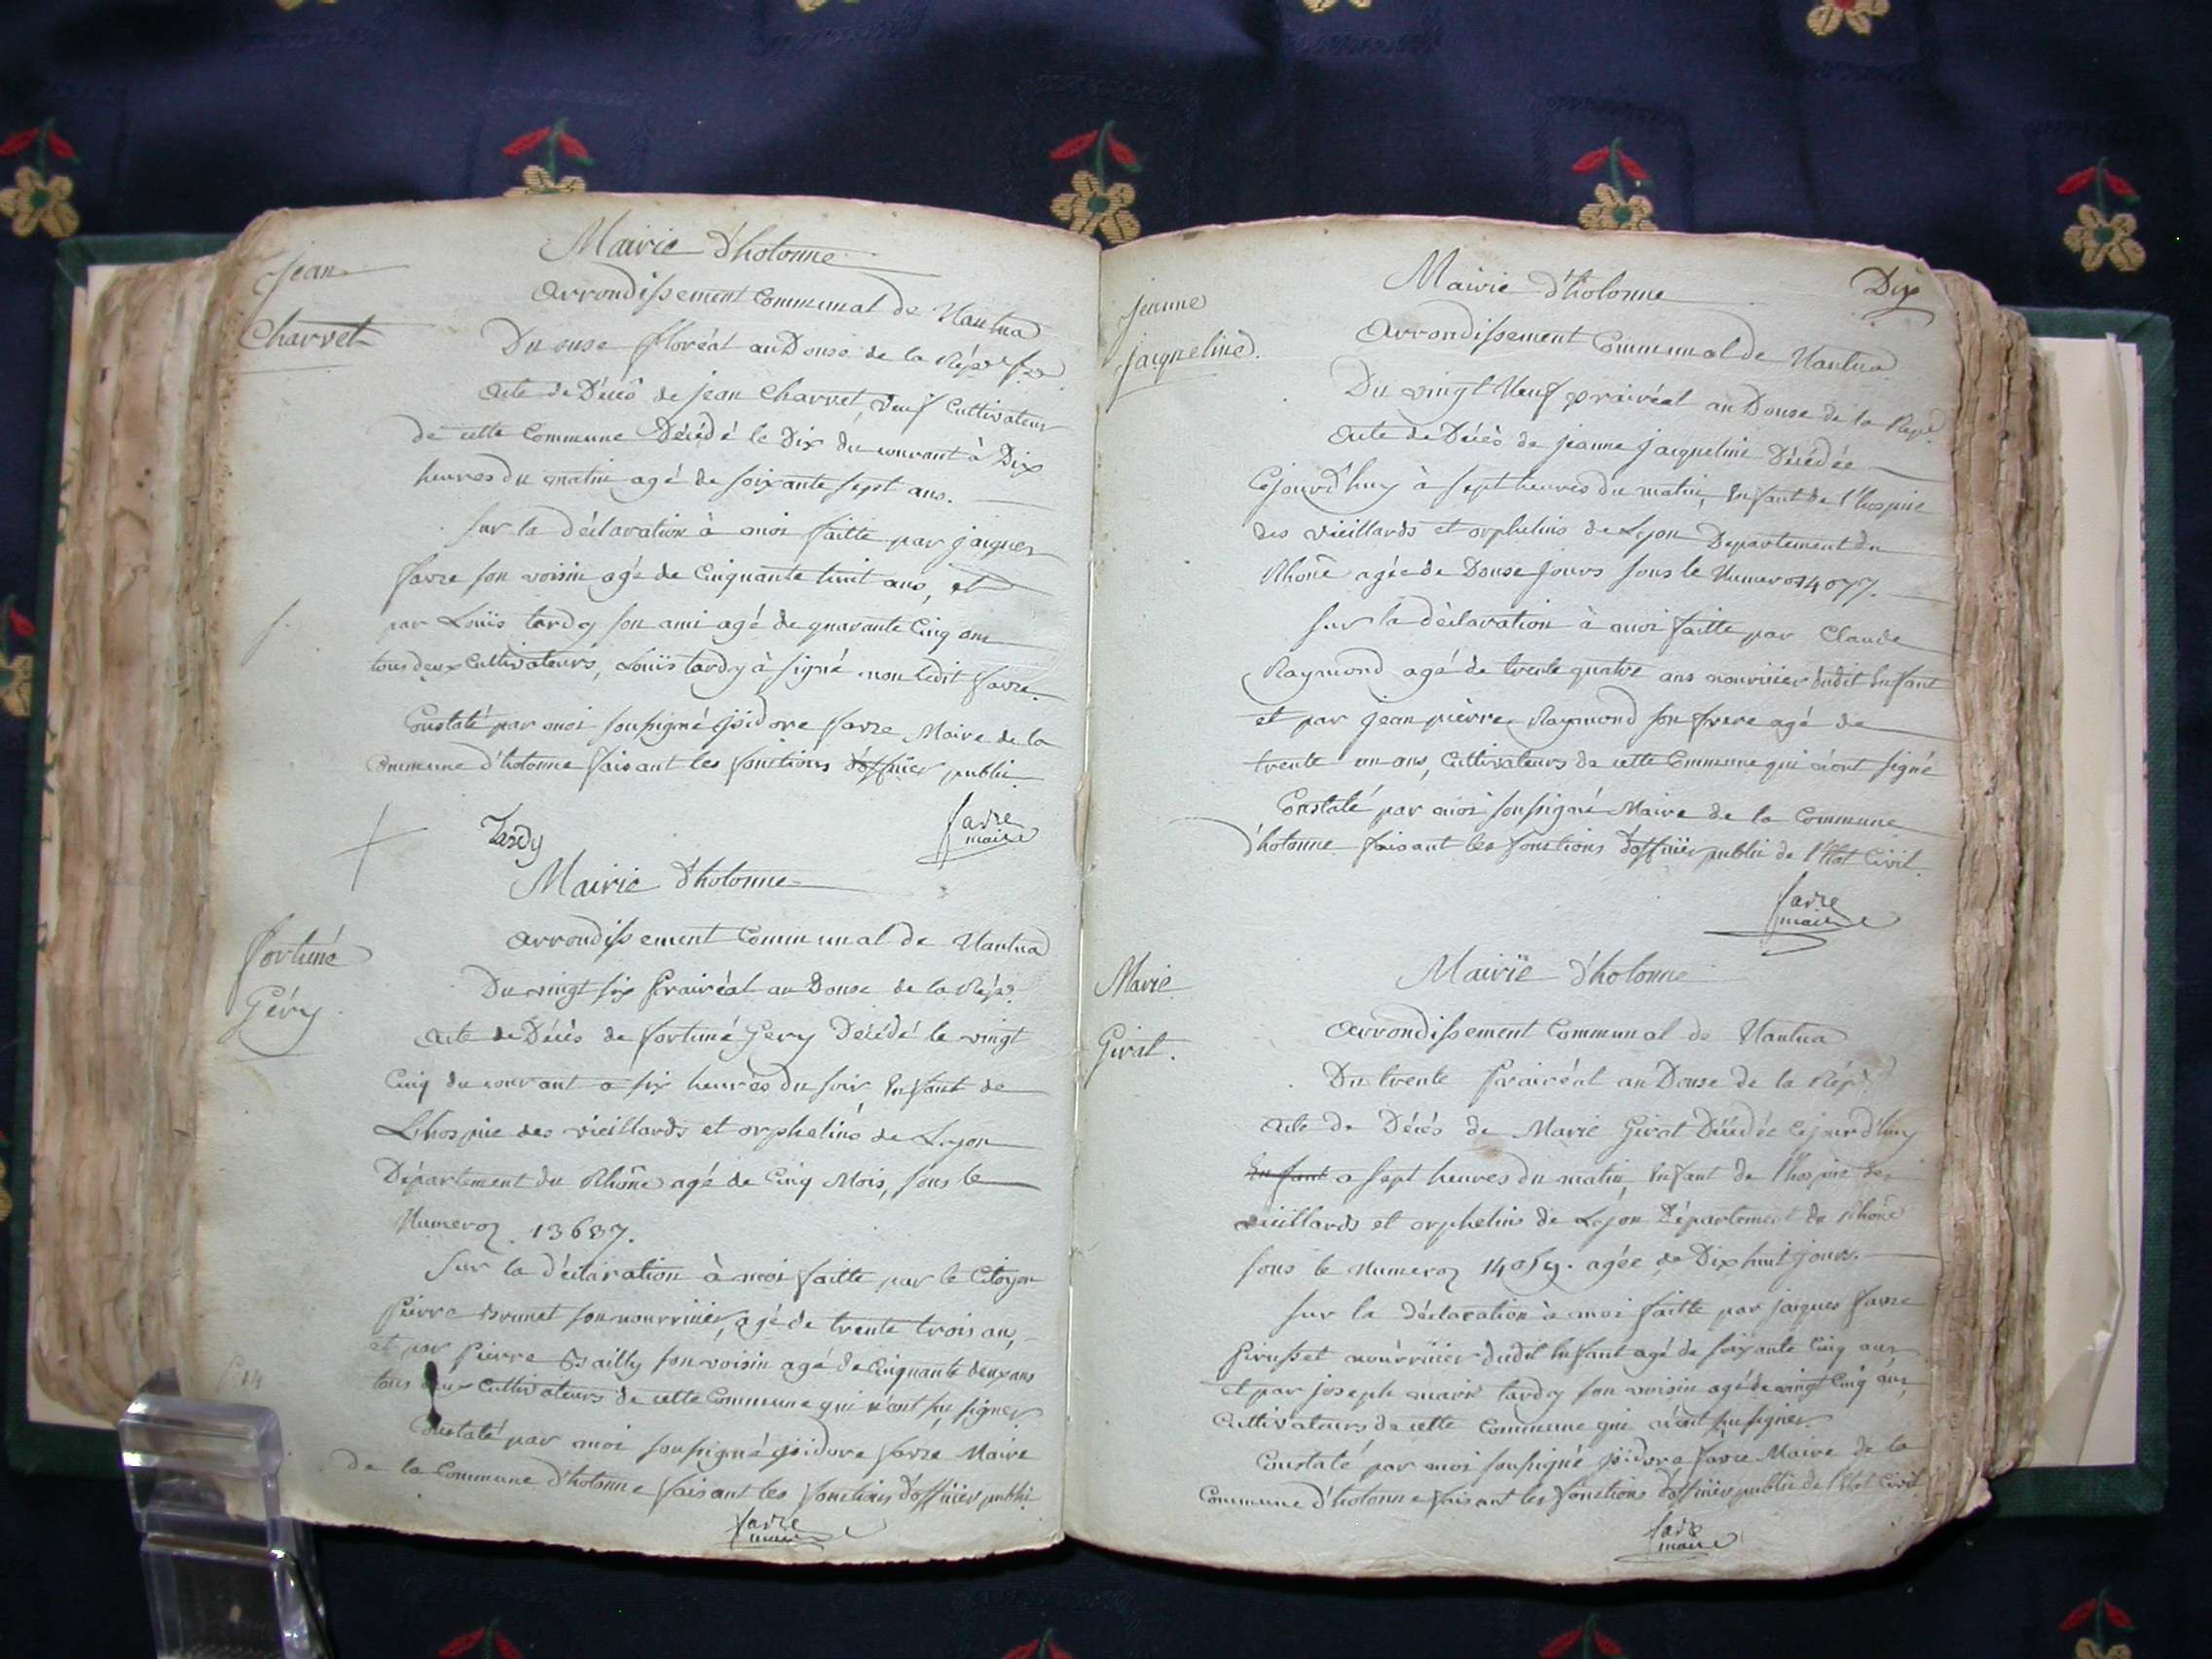 Jean
Charvet
Mairie d'hotonne
Arrondissement Communal de Nantua
Du onse floréal an Douse de la Rép.
Acte de Décès de jean Charvet, veuf Cultivateur
de cette Commune Décédé le Dix du courant à Dix
heures du matin agé de soixante sept ans.
Sur la déclaration à moi faitte par jaiques
favre son voisin agé de Cinquante huit ans, et
par Loüis tardy son ami agé de quarante Cinq ans
tous deux Cultivateurs, Loüis tardy à signé non ledit favre.
Constaté par moi soussigné isidore favre Maire de la
Commune d'hotonne faisant les fonctions d'officier public
Tardy
favre
maire
Fortuné
Géry
Mairie d'hotonne
Arrondissement Communal de Nantua
Du vingt six Prairéal an Douse de la Rép.
Acte de Décès de fortuné Gery Décédé le vingt
Cinq du courant a six heures du soir, Enfant de
L'hospice des vieillards et orphelins de Lyon
Département du Rhône agé de Cinq Mois, sous le
Numero 13637.
Sur la déclaration à moi faitte par le Citoyen
Pierre Brunet son nourricier, agé de trente trois ans,
et par Pierre Bailly son voisin agé de Cinquante deux ans
tous deux Cultivateurs de cette Commune qui n'ont su signer
Constaté par moi soussigné isidore favre Maire
de la Commune d'hotonne faisant les fonctions d'officier public
favre
maire
Jeanne
jaqueline.
Mairie d'hotonne
Dix
Arrondissement Communal de Nantua
Du vingt Neuf prairéal an Douse de la Rép.
Acte de Décès de jeanne jacqueline Décédée
Cejourd'huy à sept heures du matin, Enfant de l'hospice
des vieillards et orphelins de Lyon Departement du
Rhône agée de Douse jours sous le Numero 14077.
Sur la déclaration à moi faitte par Claude
Raymond agé de trente quatre ans nourricier dudit Enfant
et par jean pierre Raymond son frere agé de
trente un ans, Cultivateurs de cette Commune qui n'ont signé
Constaté par moi soussigné Maire de la Commune
d'hotonne faisant les fonctions d'officier public de l'Etat Civil.
favre
maire
Marie
Girat.
Mairie d'hotonne
Arrondissement Communal de Nantua
Du trente Prairéal an Douse de la Rép.
Acte de Décès de Marie Girat Décédée Cejourd'huy
Enfant a sept heures du matin, Enfant de l'hospice des
vieillards et orphelins de Lyon Département du Rhône
sous le Numero 14059. agée de Dix huit jours.
Sur la déclaration à moi faitte par jaiques favre
Grusset nourricier dudit Enfant agé de soixante Cinq ans
et par joseph marie tardy son voisin agé de vingt Cinq ans,
Cultivateurs de cette Commune qui n'ont su signer.
Constaté par moi soussigné isidore favre Maire de la
Commune d'hotonne faisant les fonctions d'officier public de l'Etat Civil
favre
maire